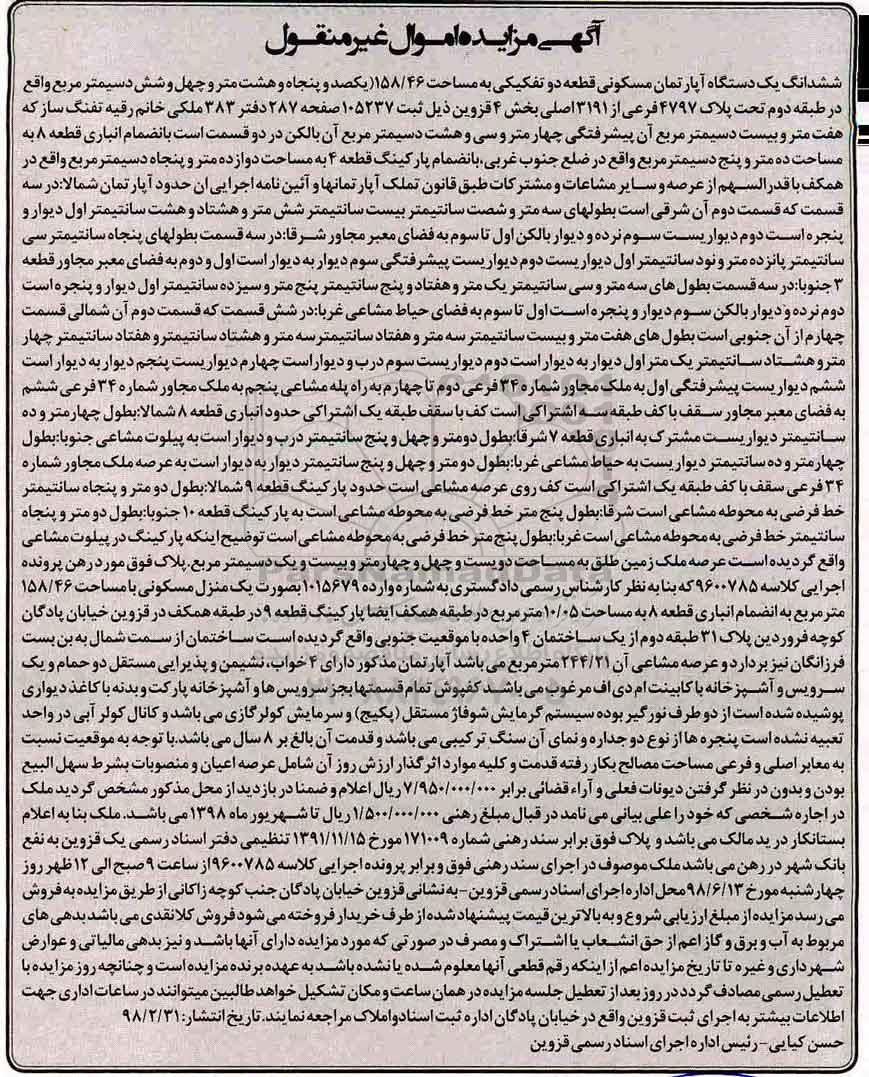 آگهی مزایده اموال غیر منقول
ششدانگ یک دستگاه آپارتمان مسکونی قطعه دو تفکیکی به مساحت ۱۵۸/۴۶(یکصد و پنجاه و هشت متر و چهل و شش دسیمتر مربع واقع
در طبقه دوم تحت پلاک ۴۷۹۷ فرعی از ۳۱۹۱ اصلی بخش ۴ قزوین ذیل ثبت ۱۰۵۲۳۷ صفحه ۲۸۷ دفتر ۳۸۳ ملکی خانم رقیه تفنگ ساز که
هفت متر و بیست دسیمتر مربع آن پیشرفتگی چهار متر و سی و هشت دسیمتر مربع آن بالکن در دو قسمت است بانضمام انباری قطعه ۸ به
مساحت ده متر و پنج دسیمتر مربع واقع در ضلع جنوب غربی،بانضمام پارکینگ قطعه ۴ به مساحت دوازده متر و پنجاه دسیمتر مربع واقع در
همکف با قدرالسهم از عرصه و سایر مشاعات و مشترکات طبق قانون تملک آپارتمانها و آئین نامه اجرایی ان حدود آپارتمان شمالا:در سه
قسمت که قسمت دوم آن شرقی است بطولهای سه متر و شصت سانتیمتر بیست سانتیمتر شش متر و هشتاد و هشت سانتیمتر اول دیوار و
پنجره است دوم دیواریست سوم نرده و دیوار بالکن اول تا سوم به فضای معبر مجاور شرقا:در سه قسمت بطولهای پنجاه سانتیمتر سی
سانتیمتر پانزده متر و نود سانتیمتر اول دیواریست دوم دیواریست پیشرفتگی سوم دیوار به دیوار است اول و دوم به فضای معبر مجاور قطعه
۳ جنوبا:در سه قسمت بطول های سه متر و سی سانتیمتر یک متر و هفتاد و پنج سانتیمتر پنج متر و سیزده سانتیمتر اول دیوار و پنجره است
دوم نرده و دیوار بالکن سوم دیوار و پنجره است اول تا سوم به فضای حیاط مشاعی غربا:در شش قسمت که قسمت دوم آن شمالی قسمت
چهارم از آن جنوبی است بطول های هفت متر و بیست سانتیمتر سه متر و هفتاد سانتیمتر سه متر و هشتاد سانتیمتر و هفتاد سانتیمتر چهار
متر و هشتاد سانتیمتر یک متر اول دیوار به دیوار است دوم دیواریست سوم درب و دیوار است چهارم دیواریست پنجم دیوار به دیوار است
ششم دیواریست پیشرفتگی اول به ملک مجاور شماره ۳۴ فرعی دوم تا چهارم به راه پله مشاعی پنجم به ملک مجاور شماره ۳۴ فرعی ششم
به فضای معبر مجاور سقف با کف طبقه سه اشتراکی است کف با سقف طبقه یک اشتراکی حدود انباری قطعه ۸ شمالا:بطول چهار متر و ده
سانتیمتر دیواریست مشترک به انباری قطعه ۷ شرقا:بطول دو متر و چهل و پنج سانتیمتر درب و دیوار است به پیلوت مشاعی جنوبا:بطول
چهار متر و ده سانتیمتر دیواریست به حیاط مشاعی غربا:بطول دو متر و چهل و پنج سانتیمتر دیوار به دیوار است به عرصه ملک مجاور شماره
۳۴ فرعی سقف با کف طبقه یک اشتراکی است کف روی عرصه مشاعی است حدود پارکینگ قطعه ۹ شمالا:بطول دو متر و پنجاه سانتیمتر
خط فرضی به محوطه مشاعی است شرقا:بطول پنج متر خط فرضی به محوطه مشاعی است به پارکینگ قطعه ۱۰ جنوبا:بطول دو متر و پنجاه
سانتیمتر خط فرضی به محوطه مشاعی است غربا:بطول پنج متر خط فرضی به محوطه مشاعی است توضیح اینکه پارکینگ در پیلوت مشاعی
واقع گردیده است عرصه ملک زمین طلق به مساحت دویست و چهل و چهار متر و بیست و یک دسیمتر مربع.پلاک فوق مورد رهن پرونده
اجرایی کلاسه ۹۶۰۰۷۸۵ که بنا به نظر کارشناس رسمی دادگستری به شماره وارده ۱۰۱۵۶۷۹ بصورت یک منزل مسکونی با مساحت ۱۵۸/۴۶
متر مربع به انضمام انباری قطعه ۸ به مساحت ۱۰/۰۵ متر مربع در طبقه همکف ایضا پارکینگ قطعه ۹ در طبقه همکف در قزوین خیابان پادگان
کوچه فروردین پلاک ۳۱ طبقه دوم از یک ساختمان ۴ واحده با موقعیت جنوبی واقع گردیده است ساختمان از سمت شمال به بن بست
فرزانگان نیز بر دارد و عرصه مشاعی آن ۲۴۴/۲۱ متر مربع می باشد آپارتمان مذکور دارای ۴ خواب، نشیمن و پذیرایی مستقل دو حمام و یک
سرویس و آشپزخانه با کابینت ام دی اف مرغوب می باشد کفپوش تمام قسمتها بجز سرویس ها و آشپزخانه پارکت و بدنه با کاغذ دیواری
پوشیده شده است از دو طرف نورگیر بوده سیستم گرمایش شوفاژ مستقل (پکیج) و سرمایش کولر گازی می باشد و کانال کولر آبی در واحد
تعبیه نشده است پنجره ها از نوع دو جداره و نمای آن سنگ ترکیبی می باشد و قدمت آن بالغ بر ۸ سال می باشد.با توجه به موقعیت نسبت
به معابر اصلی و فرعی مساحت مصالح بکار رفته قدمت و کلیه موارد اثرگذار ارزش روز آن شامل عرصه اعیان و منصوبات بشرط سهل البیع
بودن و بدون در نظر گرفتن دیونات فعلی و آراء قضائی برابر ۷/۹۵۰/۰۰۰/۰۰۰ ریال اعلام و ضمنا در بازدید از محل مذکور مشخص گردید ملک
در اجاره شخصی که خود را علی بیانی می نامد در قبال مبلغ رهنی ۱/۵۰۰/۰۰۰/۰۰۰ ریال تا شهریور ماه ۱۳۹۸ می باشد. ملک بنا به اعلام
بستانکار در ید مالک می باشد و پلاک فوق برابر سند رهنی شماره ۱۷۱۰۰۹ مورخ ۱۳۹۱/۱۱/۱۵ تنظیمی دفتر اسناد رسمی یک قزوین به نفع
بانک شهر در رهن می باشد ملک موصوف در اجرای سند رهنی فوق و برابر پرونده اجرایی کلاسه ۹۶۰۰۷۸۵ از ساعت ۹ صبح الی ۱۲ ظهر روز
چهارشنبه مورخ ۹۸/۶/۱۳ محل اداره اجرای اسناد رسمی قزوین- به نشانی قزوین خیابان پادگان جنب کوچه زاکانی از طریق مزایده به فروش
می رسد مزایده از مبلغ ارزیابی شروع و به بالاترین قیمت پیشنهاد شده از طرف خریدار فروخته می شود فروش کلا نقدی می باشد بدهی های
مربوط به آب و برق و گاز اعم از حق انشعاب یا اشتراک و مصرف در صورتی که مورد مزایده دارای آنها باشد و نیز بدهی مالیاتی و عوارض
شهرداری و غیره تا تاریخ مزایده اعم از اینکه رقم قطعی آنها معلوم شده یا نشده باشد به عهده برنده مزایده است و چنانچه روز مزایده با
تعطیل رسمی مصادف گردد در روز بعد از تعطیل جلسه مزایده در همان ساعت و مکان تشکیل خواهد طالبین میتوانند در ساعات اداری جهت
اطلاعات بیشتر به اجرای ثبت قزوین واقع در خیابان پادگان اداره ثبت اسناد و املاک مراجعه نمایند.تاریخ انتشار: ۹۸/۲/۳۱
حسن کیایی- رئیس اداره اجرای اسناد رسمی قزوین